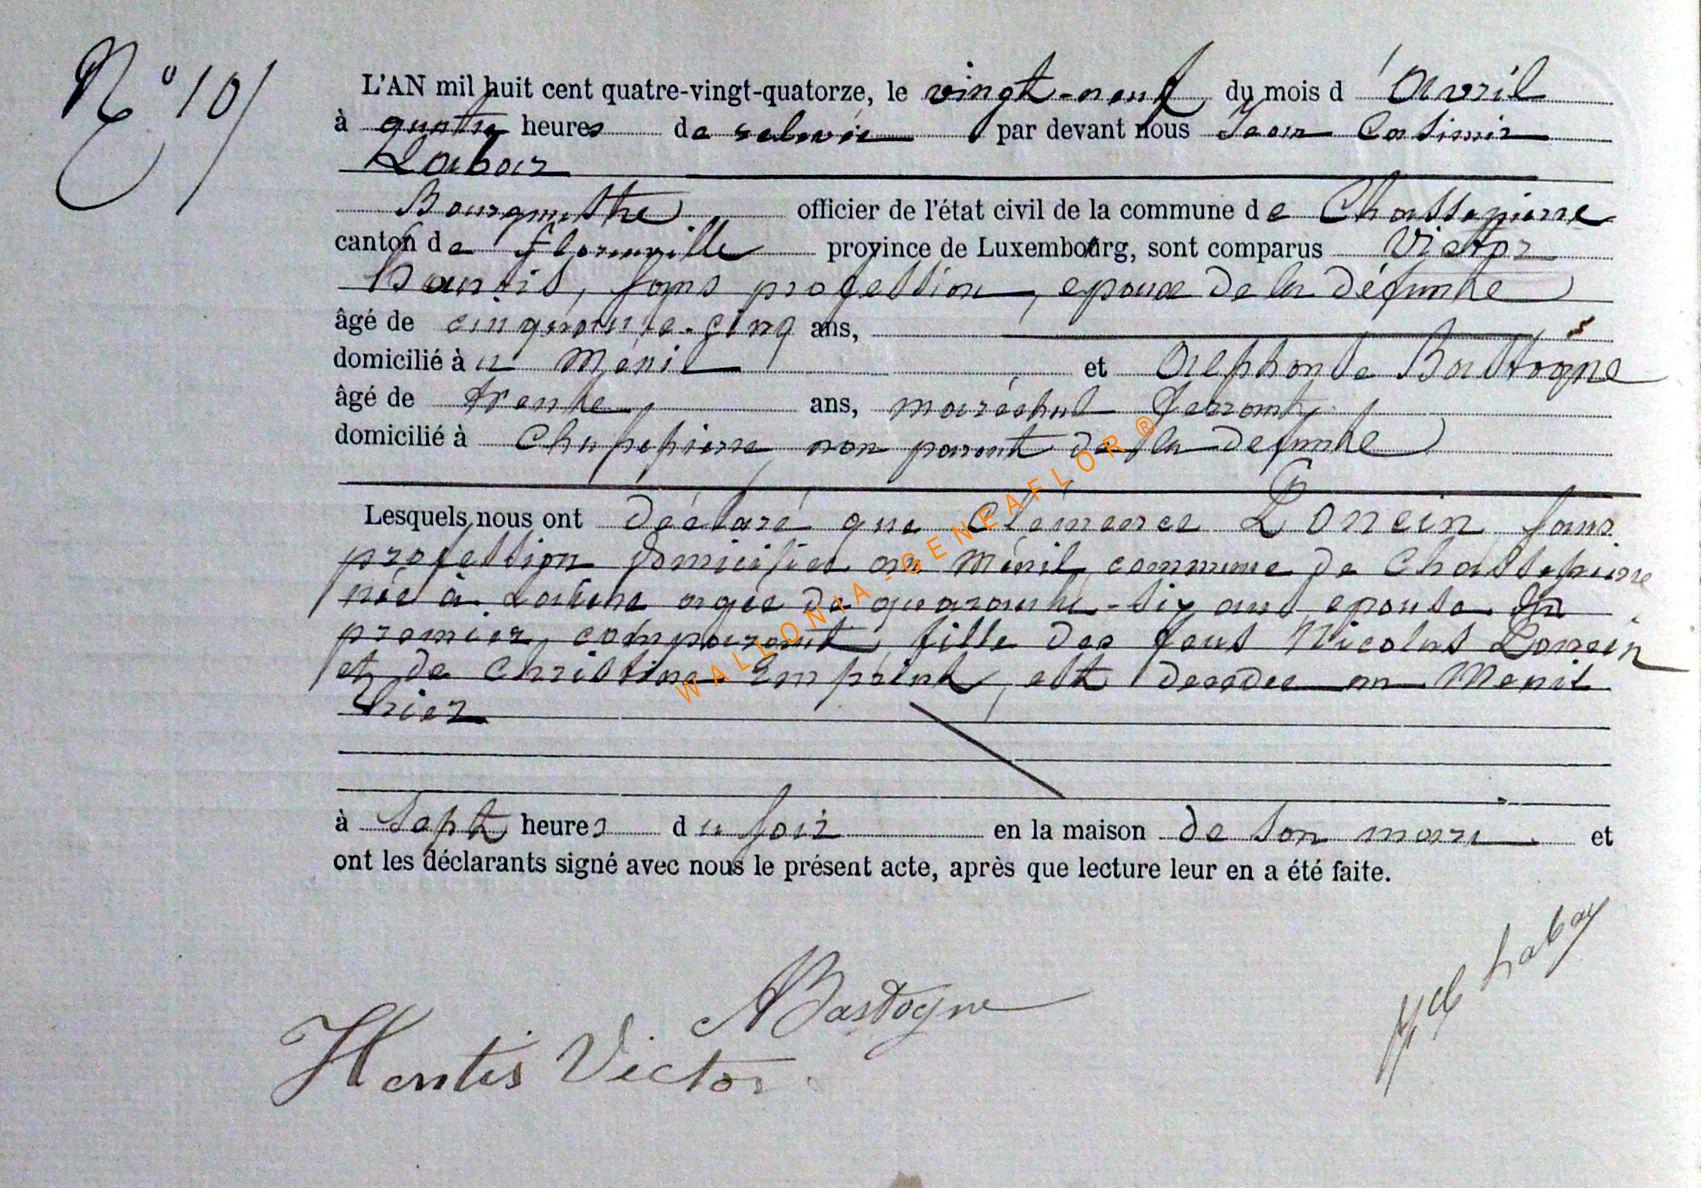 N° 10/
L'AN mil huit cent quatre-vingt-quatorze, le vingt-neuf du mois d'Avril
à quatre heures de relevée par devant nous Jean Casimir
Labar
Bourgmestre officier de l'état civil de la commune de Chassepierre
canton de Florenville province de Luxembourg, sont comparus Victor
Hantis, sans profession, epoux de la défunte
âgé de cinquante-cinq ans,
domicilié à u Menil et Alphonse Bastogne
âgé de trente ans, maréchal ferrant,
domicilié à Chassepierre non parent de la defunte
Lesquels nous ont déclaré que Clémence Lonein sans
profession domiciliée au Ménil commune de Chassepierre
née à agée de quarante-six ans epouse du
premier comparant, fille des feus Nicolas Lonein
et de Christine est decedee au Menil
hier
à sept heures du soir en la maison de son mari et
ont les déclarants signé avec nous le présent acte, après que lecture leur en a été faite.
Labar
ABastogne
Hantis Victor
WALLONIA-GENEAFLOR ®